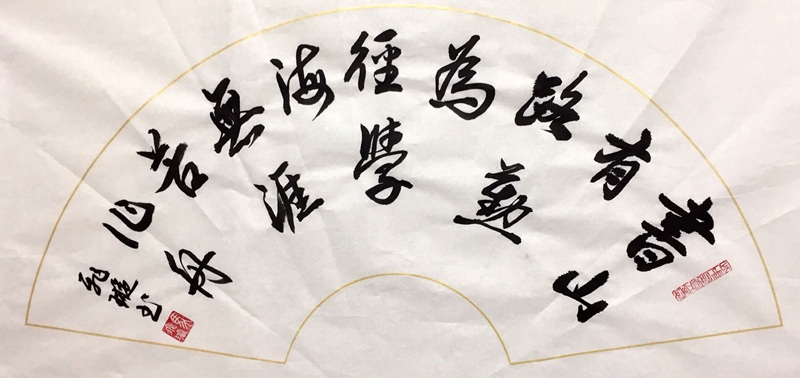 書山
有
路勤
為
徑學
海
無涯
苦
作舟